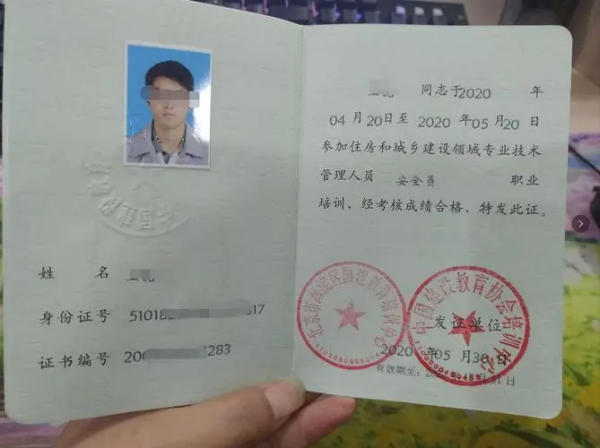 姓 名
身份证号 51018 17
证书编号 200 283
同志于2020 年
04 月 20日至 2020 年05月20日
参加住房和城乡建设领域专业技术
管理人员 安全员 职业
培训、经考核成绩合格，特发此证。
中国建设教育协会培训中心
发证单位
2020 年05 月30日
有效期至：